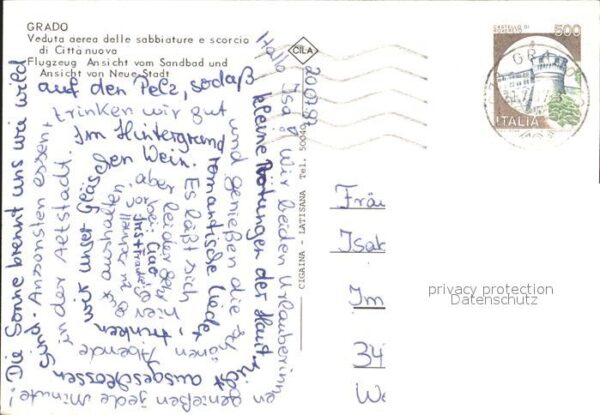 GRADO
Veduta aerea delle sabbiature e scorcio
di Città nuova
Flugzeug Ansicht vom Sandbad und
Ansicht von Neue Stadt
CILA
CIGAINA - LATISANA Tel. 50040
CASTELLO DI ROVERETO
500
ITALIA
20.7.87
Hallo Isa! Wir beiden Urlauberinn
en genießen jede Minute!
Die Sonne brennt uns wie wild
auf den Pelz, sodaß
kleine Rötungen der Haut nicht
ausgeschlossen
sind. Ansonsten essen +
trinken wir gut
und genießen die schönen
Abende
in der Altstadt.
Im Hintergrund
romantische Lieder,
trinken
wir unser Gläschen Wein.
Es läßt sich
hier
aushalten,
aber leider
Ciao
Fräu
Isab
Im
34
We
privacy protection
Datenschutz